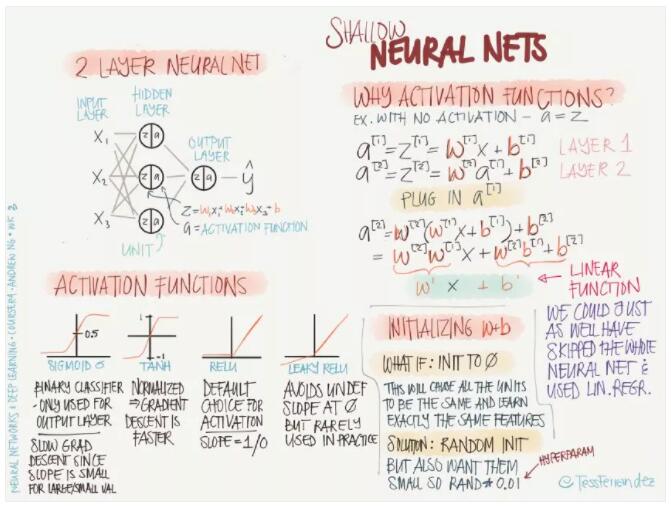 SHALLOW
NEURAL NETS
2 LAYER NEURAL NET
INPUT LAYER
HIDDEN LAYER
OUTPUT LAYER
X₁
X₂
X₃
z a
z a
z a
z a
ŷ
Z=W₁X₁+W₂X₂+W₃X₃+b
a=ACTIVATION FUNCTION
UNIT
ACTIVATION FUNCTIONS
0.5
SIGMOID σ
BINARY CLASSIFIER
- ONLY USED FOR
OUTPUT LAYER
SLOW GRAD
DESCENT SINCE
SLOPE IS SMALL
FOR LARGE/SMALL VAL
1
-1
TANH
NORMALIZED
⇒GRADIENT
DESCENT IS
FASTER
RELU
DEFAULT
CHOICE FOR
ACTIVATION
SLOPE=1/0
LEAKY RELU
AVOIDS UNDEF
SLOPE AT 0
BUT RARELY
USED IN PRACTICE
WHY ACTIVATION FUNCTIONS?
EX. WITH NO ACTIVATION - a = Z
a^[1]=Z^[1]=W^[1]X+b^[1] LAYER 1
a^[2]=Z^[2]=W^[2]a^[1]+b^[2] LAYER 2
PLUG IN a^[1]
a^[2]=W^[2](W^[1]X+b^[1])+b^[2]
=W^[2]W^[1]X+W^[2]b^[1]+b^[2]
W' X + b'
LINEAR
FUNCTION
WE COULD JUST
AS WELL HAVE
SKIPPED THE WHOLE
NEURAL NET &
USED LIN. REGR.
INITIALIZING W+b
WHAT IF: INIT TO 0
THIS WILL CAUSE ALL THE UNITS
TO BE THE SAME AND LEARN
EXACTLY THE SAME FEATURES
SOLUTION: RANDOM INIT
BUT ALSO WANT THEM
SMALL SO RAND * 0.01
HYPERPARAM
@TessFerrandez
NEURAL NETWORKS & DEEP LEARNING · COURSERA · ANDREW NG · WK 3